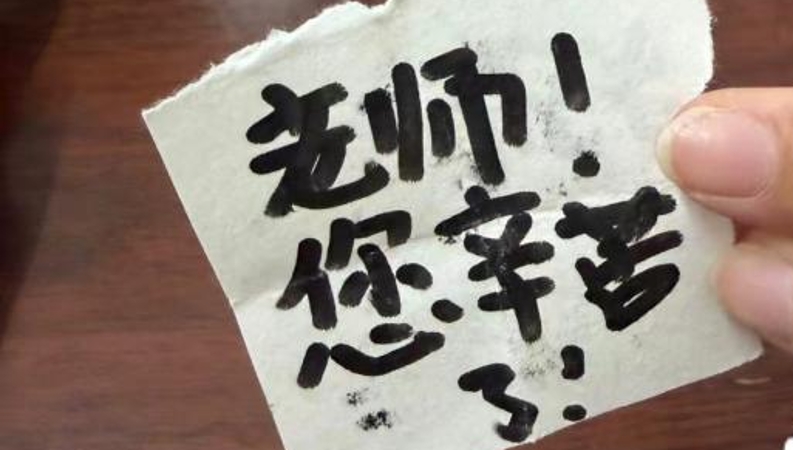 老师！
您辛苦
了！